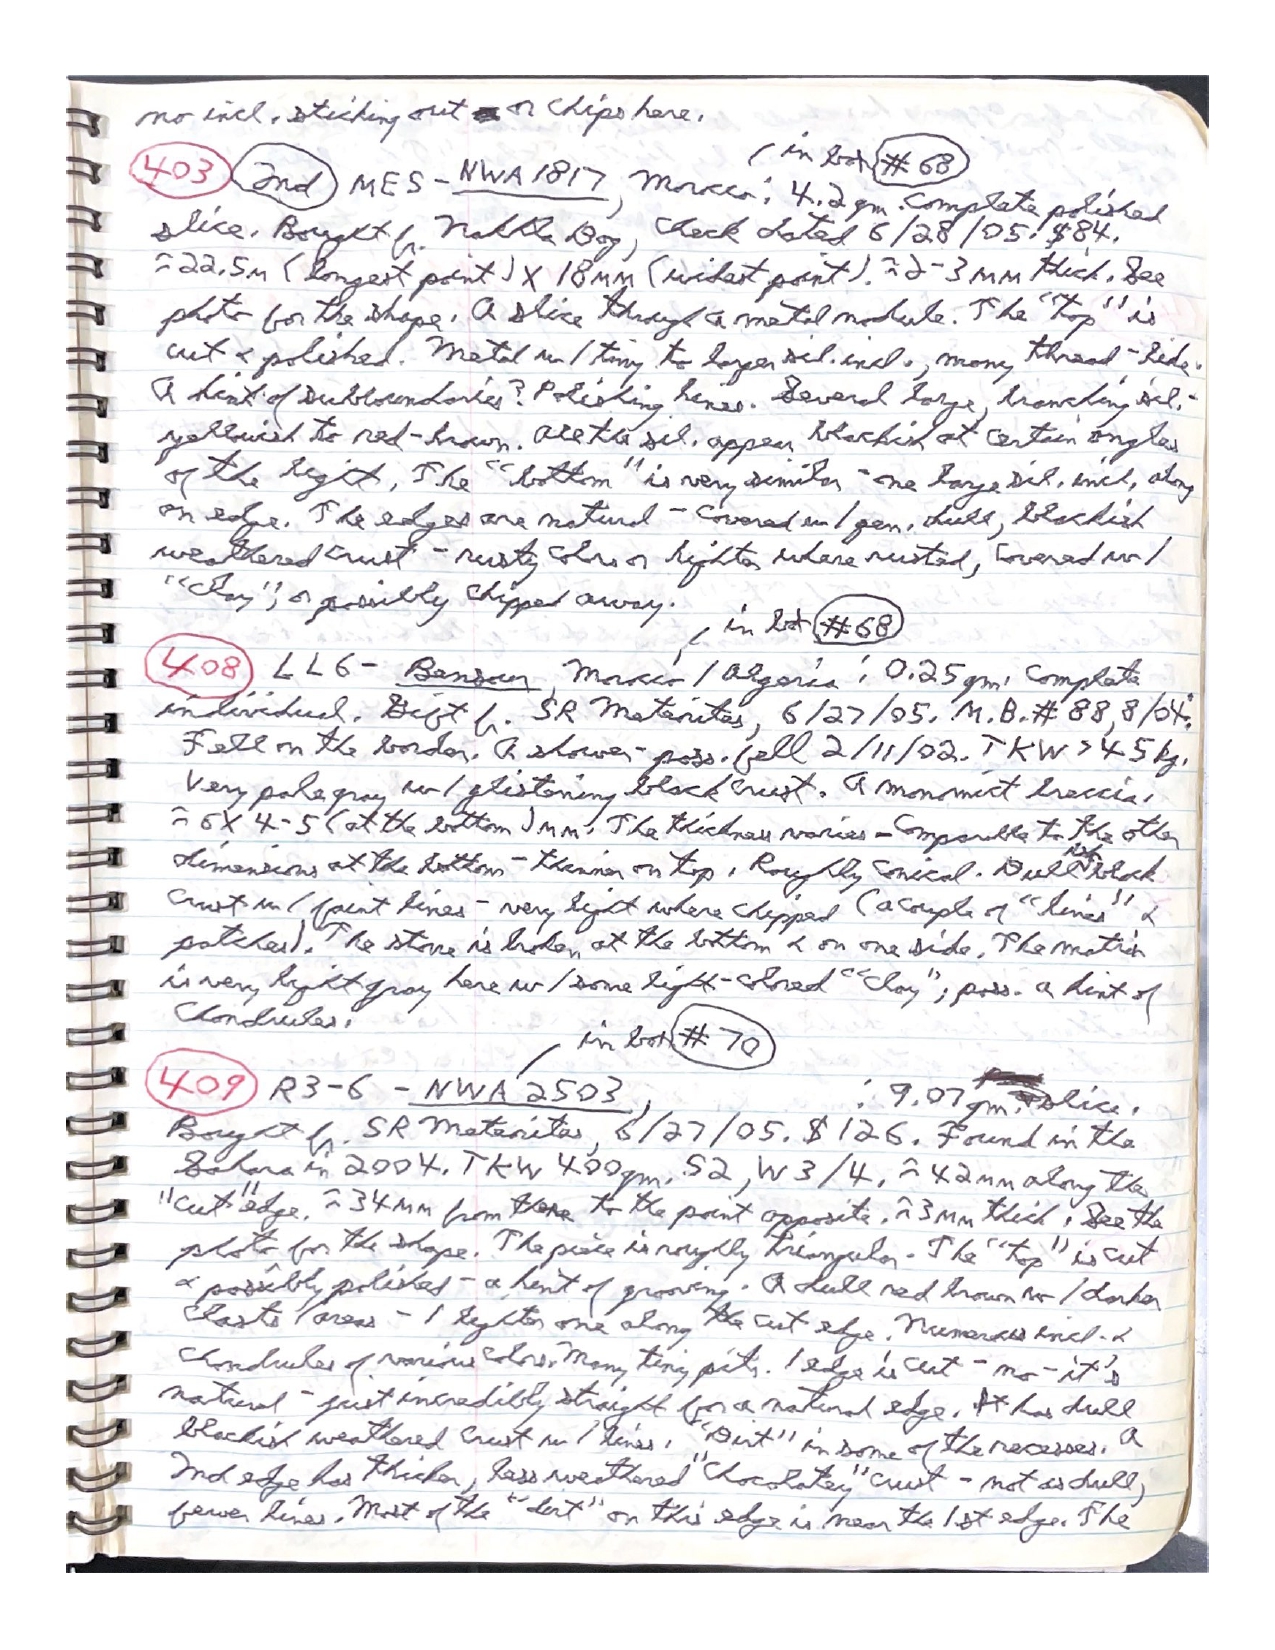 no incl. sticking out or chips here.
in box #68
403 2nd MES - NWA 1817, Morocco: 4.2 gm. Complete polished
slice. Bought fr. Nakhla Dog, check dated 6/28/05. $84.
≈22.5m (longest point) X 18mm (widest point). ≈2-3mm thick. See
photo for the shape. A slice through a metal nodule. The "top" is
cut & polished. Metal w/ tiny to larger sil. incl., many thread-like.
A hint of subboundaries? Polishing lines. Several large, branching sil. -
yellowish to red-brown. All the sil. appear blackish at certain angles
of the light. The "bottom" is very similar - one large sil. incl. along
an edge. The edges are natural - covered w/ gen. dull, blackish
weathered crust - rusty colors or lighter where rusted, covered w/
"clay", or possibly chipped away.
in box #68
408 LL6 - Bensour, Morocco / Algeria: 0.25gm. Complete
individual. Gift fr. SR Meteorites, 6/27/05. M.B. #88, 8/04.
Fell on the border. A shower - poss. fell 2/11/02. TKW >45kg.
Very pale gray w/ glistening black crust. A monomict breccia.
≈6X4-5 (at the bottom) mm. The thickness varies - comparable to the other
dimensions at the bottom - thinner on top. Roughly conical. Dull black
crust w/ faint lines - very light where chipped (a couple of "lines" &
patches). The stone is broken at the bottom & on one side. The matrix
is very light gray here w/ some light-colored "clay"; poss. a hint of
chondrules.
in box #70
409 R3-6 - NWA 2503, : 9.07gm. slice.
Bought fr. SR Meteorites, 6/27/05. $126. Found in the
Sahara in 2004. TKW 400gm. S2, W3/4. ≈42mm along the
"cut" edge. ≈34mm from there to the point opposite. ≈3mm thick. See the
photo for the shape. The piece is roughly triangular. The "top" is cut
& possibly polished - a hint of grooving. A dull red brown w/ darker
clasts/areas - 1 lighter one along the cut edge. Numerous incl. &
chondrules of various colors. Many tiny pits. 1 edge is cut - no - it's
natural - just incredibly straight for a natural edge. It has dull
blackish weathered crust w/ lines. "Dirt" in some of the recesses. A
2nd edge has thicker, less weathered "chocolatey" crust - not as dull,
fewer lines. Most of the "dirt" on this edge is near the 1st edge. The